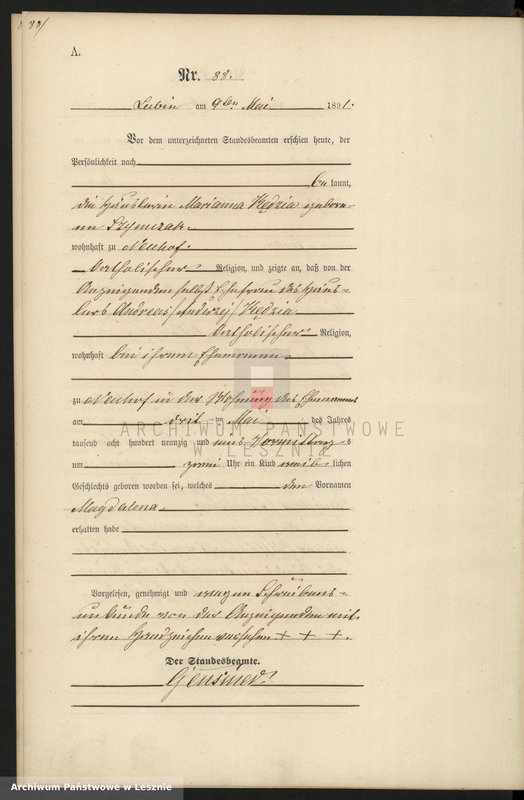 A.
Nr. 88.
Lubin am 9ten Mai 1891.
Vor dem unterzeichneten Standesbeamten erschien heute, der
Persönlichkeit nach
be kannt,
die Häuslerin Marianna Kędzia gebore-
ne Szymczak
wohnhaft zu Neuhof
katholischer Religion, und zeigte an, daß von der
Anzeigenden selbst Ehefrau des Häus-
lers Andreas /Andrzej/ Kędzia
katholischer Religion,
wohnhaft bei ihrem Ehemanne
zu Neuhof in der Wohnung des Ehemannes
am drit ten Mai des Jahres
tausend acht hundert neunzig und eins Vormittag s
um zwei Uhr ein Kind weib lichen
Geschlechts geboren worden sei, welches den Vornamen
Magdalena
erhalten habe
Vorgelesen, genehmigt und wegen Schreibens-
unkunde von der Anzeigenden mit
ihrem Handzeichen versehen + + +.
Der Standesbeamte.
ARCHIWUM PAŃSTWOWE
W LESZNIE
Archiwum Państwowe w Lesznie